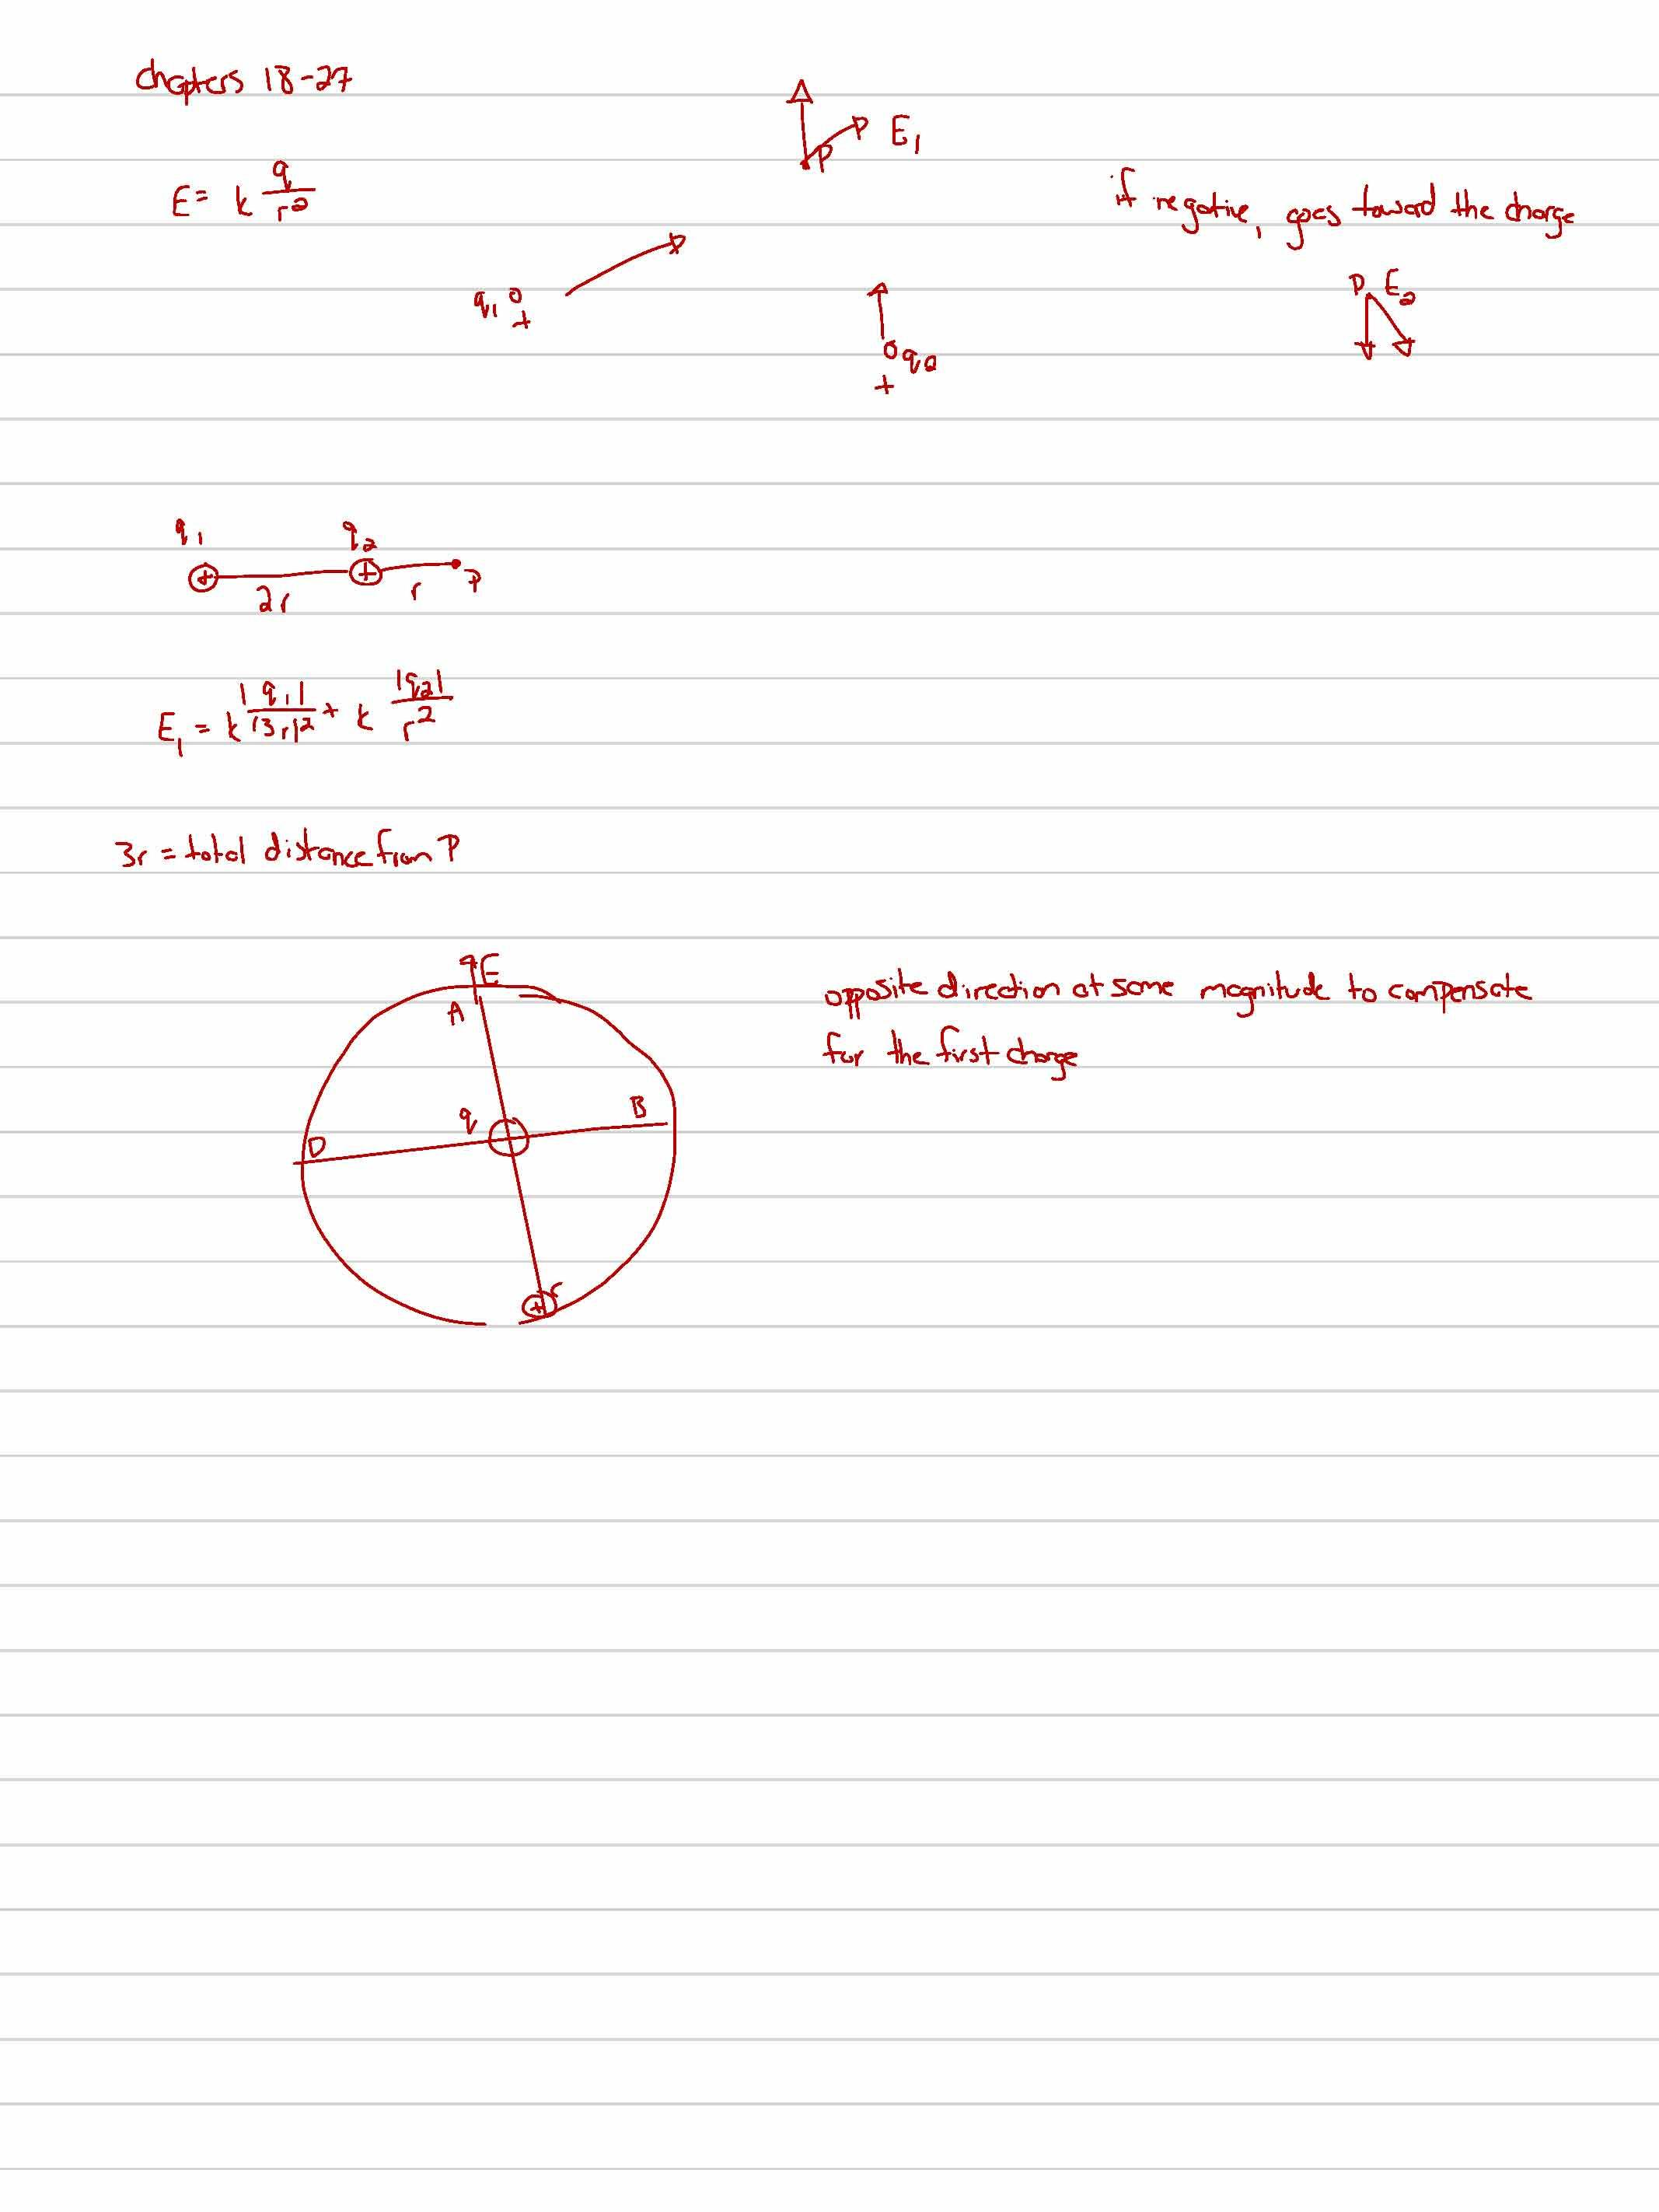 chapters 18-27
P E₁
E = k q/r²
if negative, goes toward the charge
q₁ +
P E₂
q₂
+
q₁ q₂
+ +
2r r P
E₁ = k |q₁|/(3r)² + k |q₂|/r²
3r = total distance from P
E
A
opposite direction at same magnitude to compensate
for the first charge
q B
D
+ C